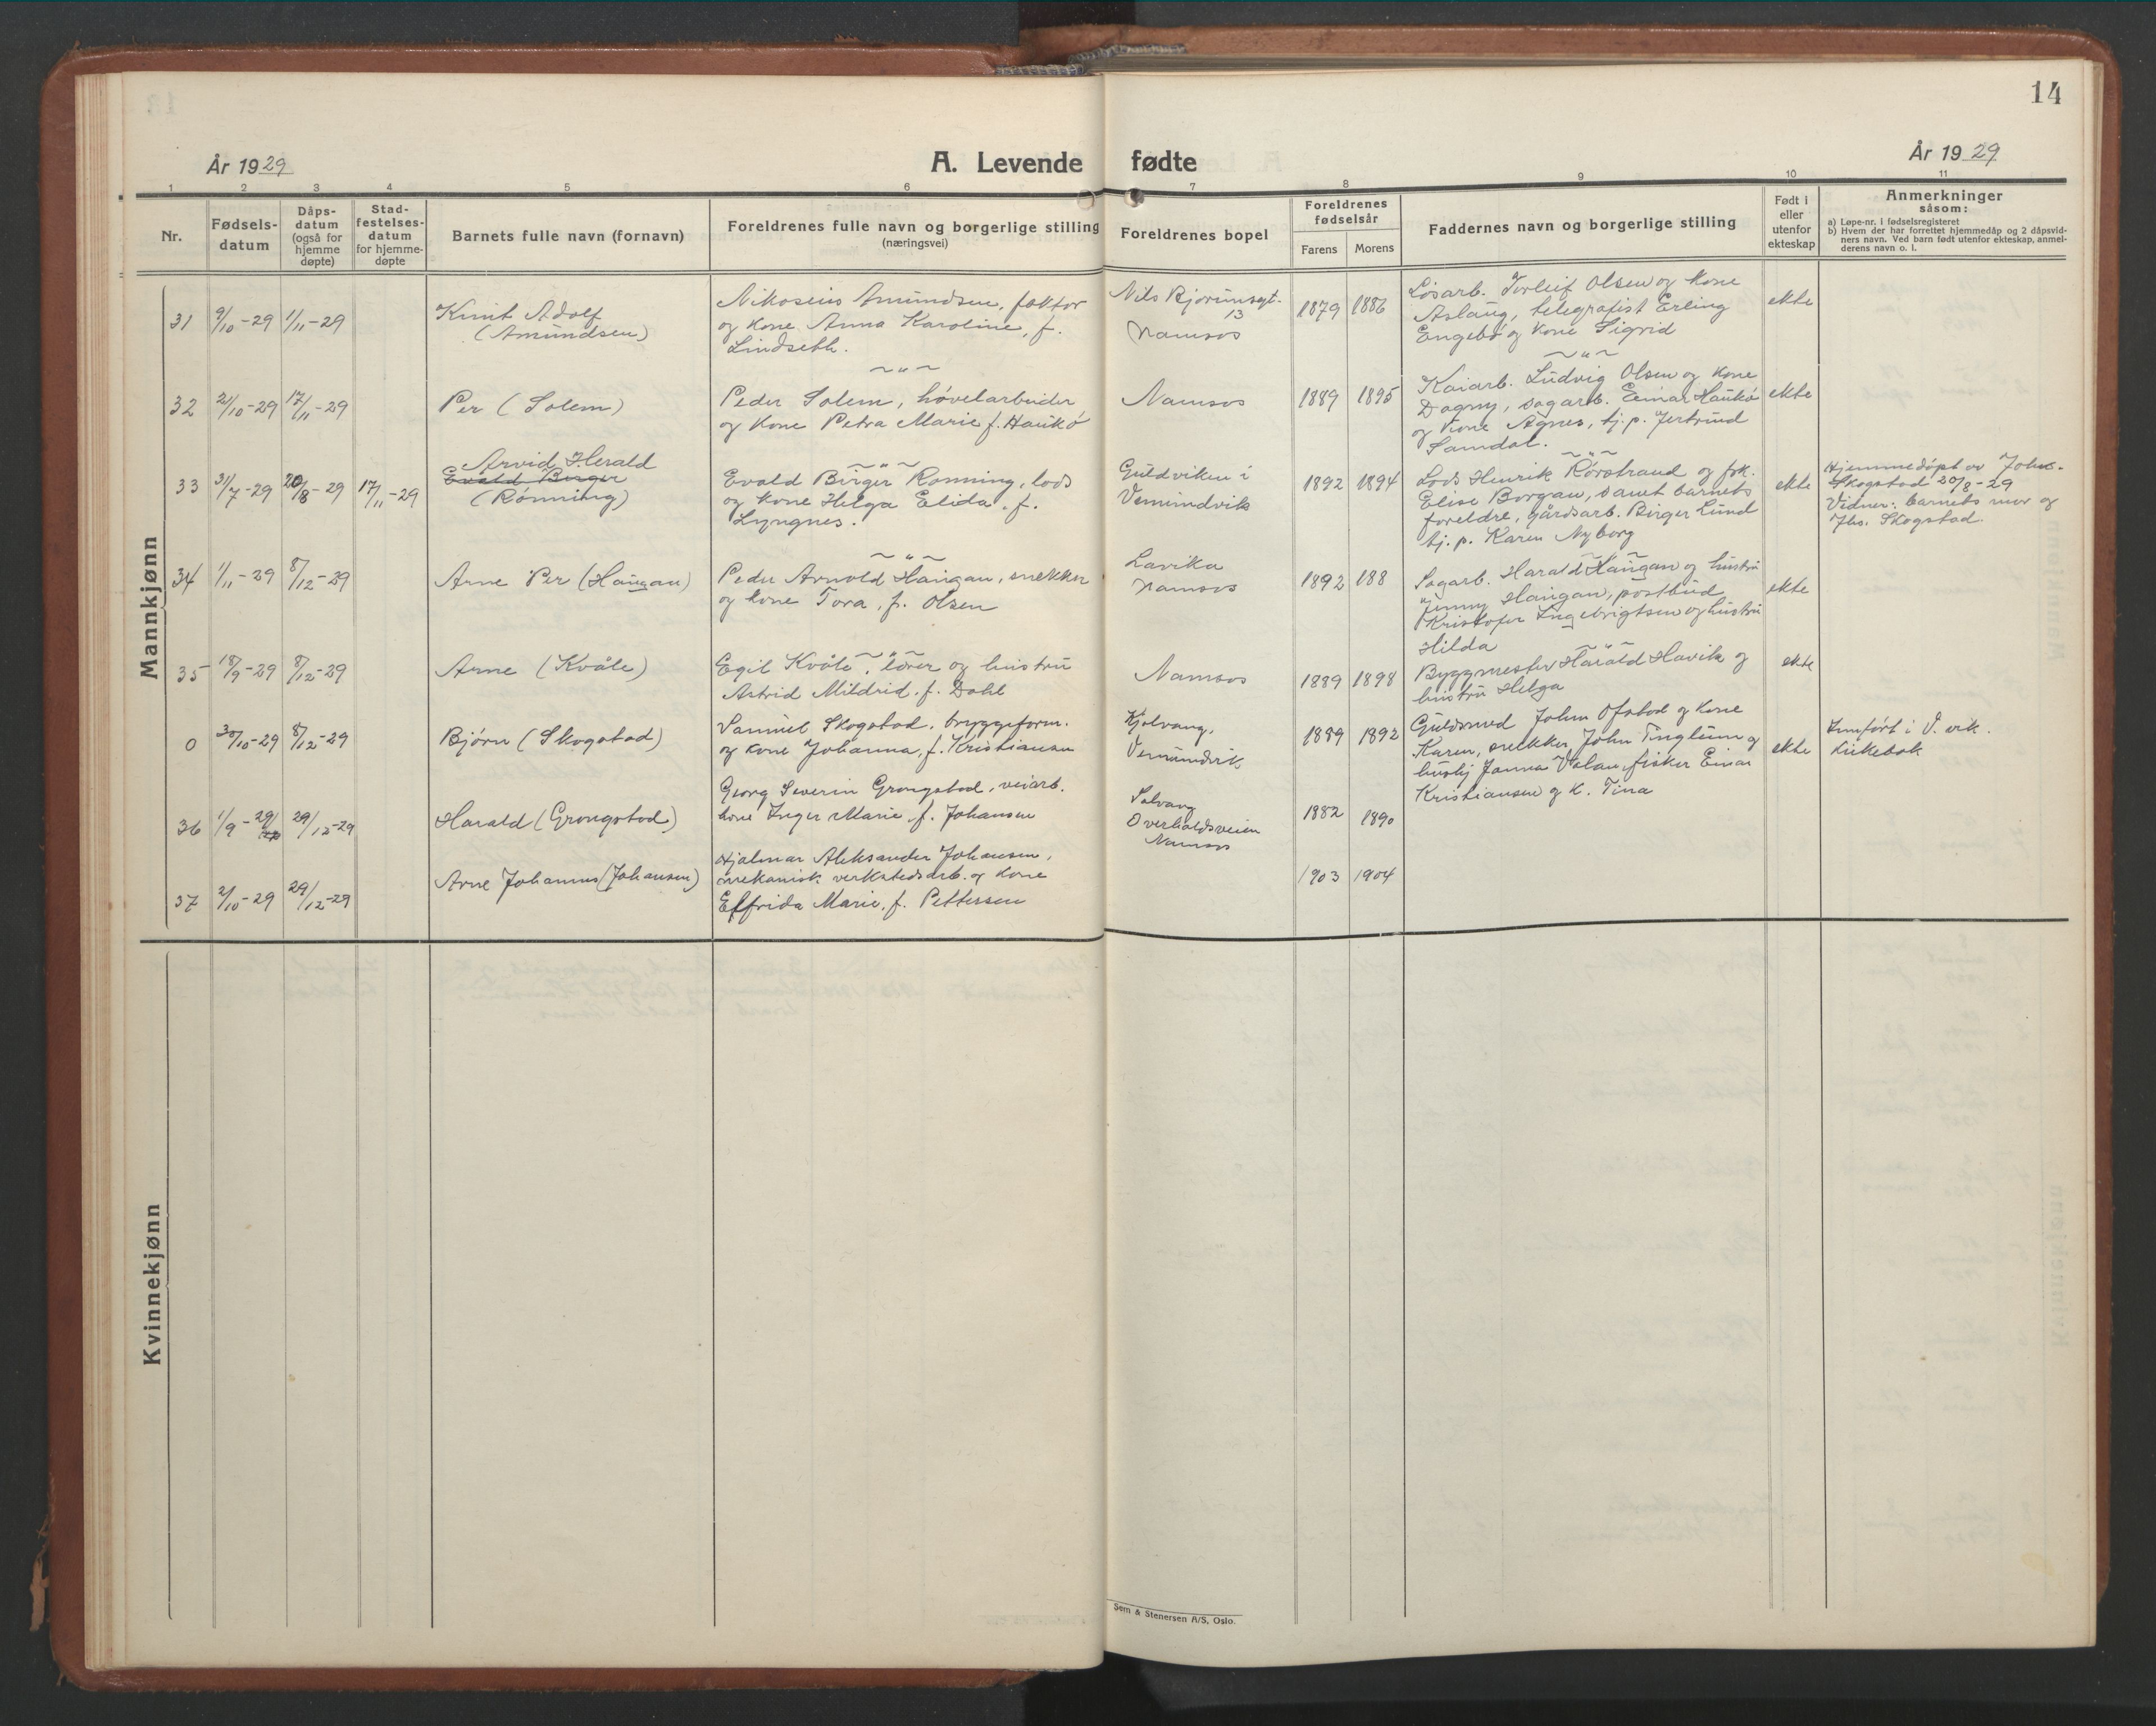 14
År 1929
A. Levende fødte
År 1929
1 2 3 4 5 6 7 8 9 10 11
Nr.
Fødsels-
datum
Dåps-
datum
(også for
hjemme
døpte)
Stad-
festelses-
datum
for hjemme-
døpte
Barnets fulle navn (fornavn)
Foreldrenes fulle navn og borgerlige stilling
(næringsvei)
Foreldrenes bopel
Foreldrenes
fødselsår
Farens Morens
Faddernes navn og borgerlige stilling
Født i
eller
utenfor
ekteskap
Anmerkninger
såsom:
a) Løpe-nr. i fødselsregisteret
b) Hvem der har forrettet hjemmedåp og 2 dåpsvid-
ners navn. Ved barn født utenfor ekteskap, anmel-
derens navn o. l.
Mannkjønn
31 9/10-29 1/11-29
Knut Adolf
(Amundsen)
Amundsen, faktor
og kone Anna Karoline, f.
Lindseth.
13
Namsos
1879 1886
Løsarb. Torleif Olsen og kone
Aslaug, telegrafist Erling
Engebø og kone Sigrid
ekte
~"~
~"~
32 2/10-29 17/11-29
Per (Solem)
Peder Solem, høvelarbeider
og kone Petra Marie f. Haukø
Namsos
1889 1895
Kaiarb. Ludvig Olsen og kone
Dagny, sagarb. Einar Haukø
og kone Agnes, tj. p. Jertrud
Samdal.
ekte
~"~
~"~
33 31/7-29 20/8-29 17/11-29
Arvid Herald
Evald Birger
(Rønning)
Evald Birger Rønning, lods
og kone Helga Elida, f.
Lyngnes.
Guldviken i
Vemundvik
1892 1894
Lods Henrik Rørstrand og frk.
Elise Borgan, samt barnets
foreldre, gårdsarb. Birger Lund
tj. p. Karen Nyborg
ekte
Hjemmedøpt av Johs.
Skogstad 20/8-29
Vidner: barnets mor og
Jhs. Skogstad.
~"~
34 1/11-29 8/12-29
Arne Per (Haugan)
Peder Arnold Haugan, snekker
og kone Tora, f. Olsen
Lavika
Namsos
1892 188
Sagarb. Harald Haugan og hustru
Jenny Haugan, postbud
Kristofer Ingebrigtsen og hustru
Hilda
ekte
~"~
~"~
35 18/9-29 8/12-29
Arne (Kvåle)
Egil Kvåle, lærer og hustru
Astrid Mildrid, f. Dahl
Namsos
1889 1898
Byggmester Harald Havik og
hustru Helga
ekte
0 30/10-29 8/12-29
Bjørn (Skogstad)
Samuel Skogstad, bryggeform.
og kone Johanna, f. Kristiansen
Kjølvang,
Vemundvik
1889 1892
Guldsmed John Ofstad og kone
Karen, snekker John Tinglum og
huslj Janna Valan, fisker Einar
Kristiansen og k. Tina
ekte
Innført i V.vik.
kirkebok
36 1/9-29 29/12-29
Harald (Grongstad)
Georg Severin Grongstad, veiarb.
kone Inger Marie, f. Johansen
Solvang
Overhaldsveien
Namsos
1882 1890
37 2/10-29 29/12-29
Arne Johannes (Johansen)
Hjalmar Aleksander Johansen,
mekanisk verkstedsarb. og kone
Elfrida Marie, f. Pettersen
1903 1904
Kvinnekjønn
Sem & Stenersen A/S, Oslo.